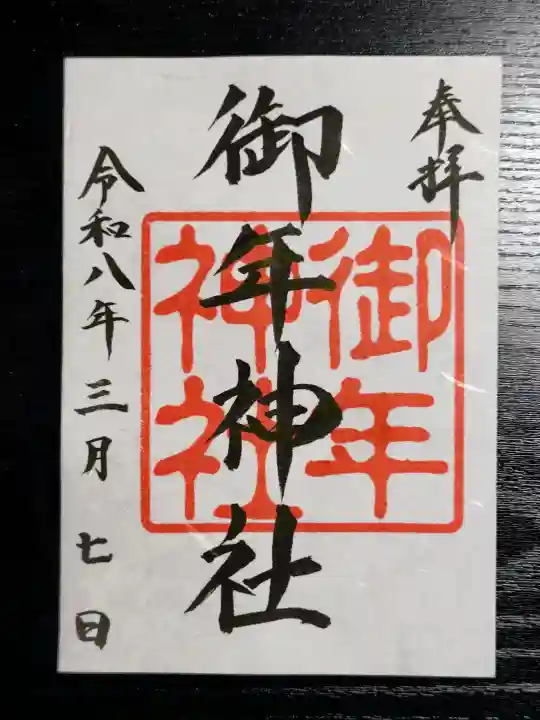 奉拝
御年神社
御年
神社
令和八年三月七日